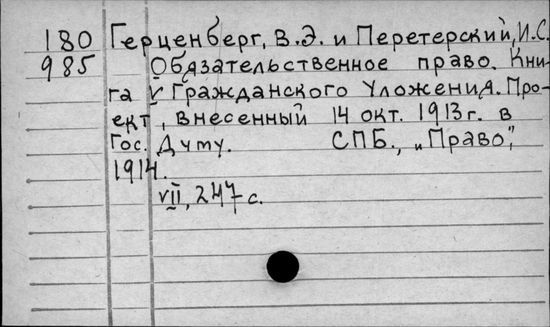 180 Герценберг, В.Э. и Перетерский, И.С.
985 Обязательственное право. Кни-
га V Гражданского Уложения. Про-
ект, внесенный 14 окт. 1913 г. в
Гос. Думу. СПБ., „Право",
1914.
VII, 247 с.